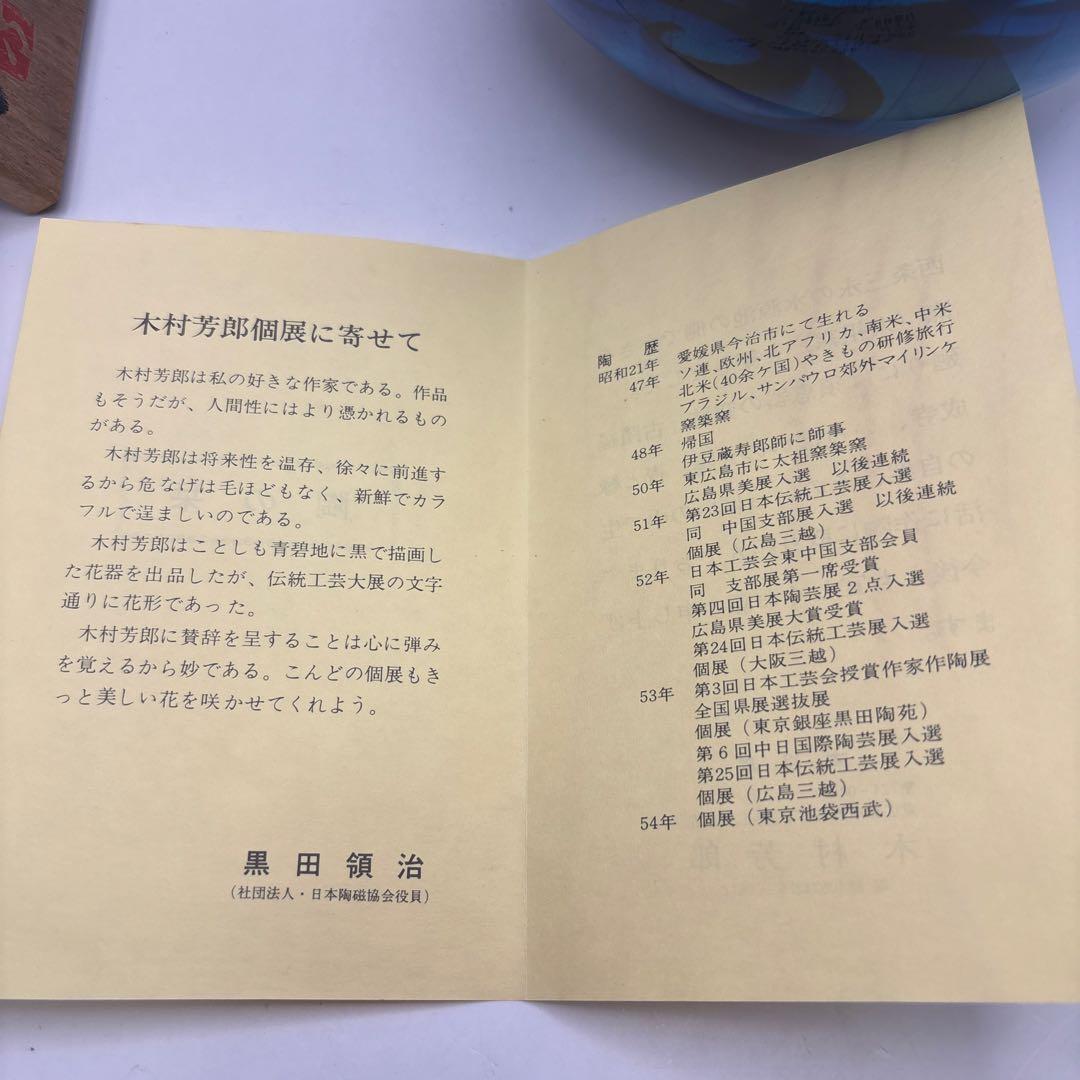 木村芳郎個展に寄せて
木村芳郎は私の好きな作家である。作品
もそうだが、人間性にはより憑かれるもの
がある。
木村芳郎は将来性を温存、徐々に前進す
るから危なげは毛ほどもなく、新鮮でカラ
フルで逞ましいのである。
木村芳郎はことしも青碧地に黒で描画し
た花器を出品したが、伝統工芸大展の文字
通りに花形であった。
木村芳郎に賛辞を呈することは心に弾み
を覚えるから妙である。こんどの個展もき
っと美しい花を咲かせてくれよう。
黒田領治
（社団法人・日本陶磁協会役員）
陶歴
昭和21年 愛媛県今治市にて生れる
47年 ソ連、欧州、北アフリカ、南米、中米
北米（40余ヶ国）やきもの研修旅行
ブラジル、サンパウロ郊外マイリンケ
窯築窯
48年 帰国
伊豆蔵寿郎師に師事
50年 東広島市に太祖窯築窯
広島県美展入選 以後連続
51年 第23回日本伝統工芸展入選
同 中国支部展入選 以後連続
個展（広島三越）
52年 日本工芸会東中国支部会員
同 支部展第一席受賞
第四回日本陶芸展2点入選
広島県美展大賞受賞
第24回日本伝統工芸展入選
個展（大阪三越）
53年 第3回日本工芸会授賞作家作陶展
全国県展選抜展
個展（東京銀座黒田陶苑）
第6回中日国際陶芸展入選
第25回日本伝統工芸展入選
個展（広島三越）
54年 個展（東京池袋西武）